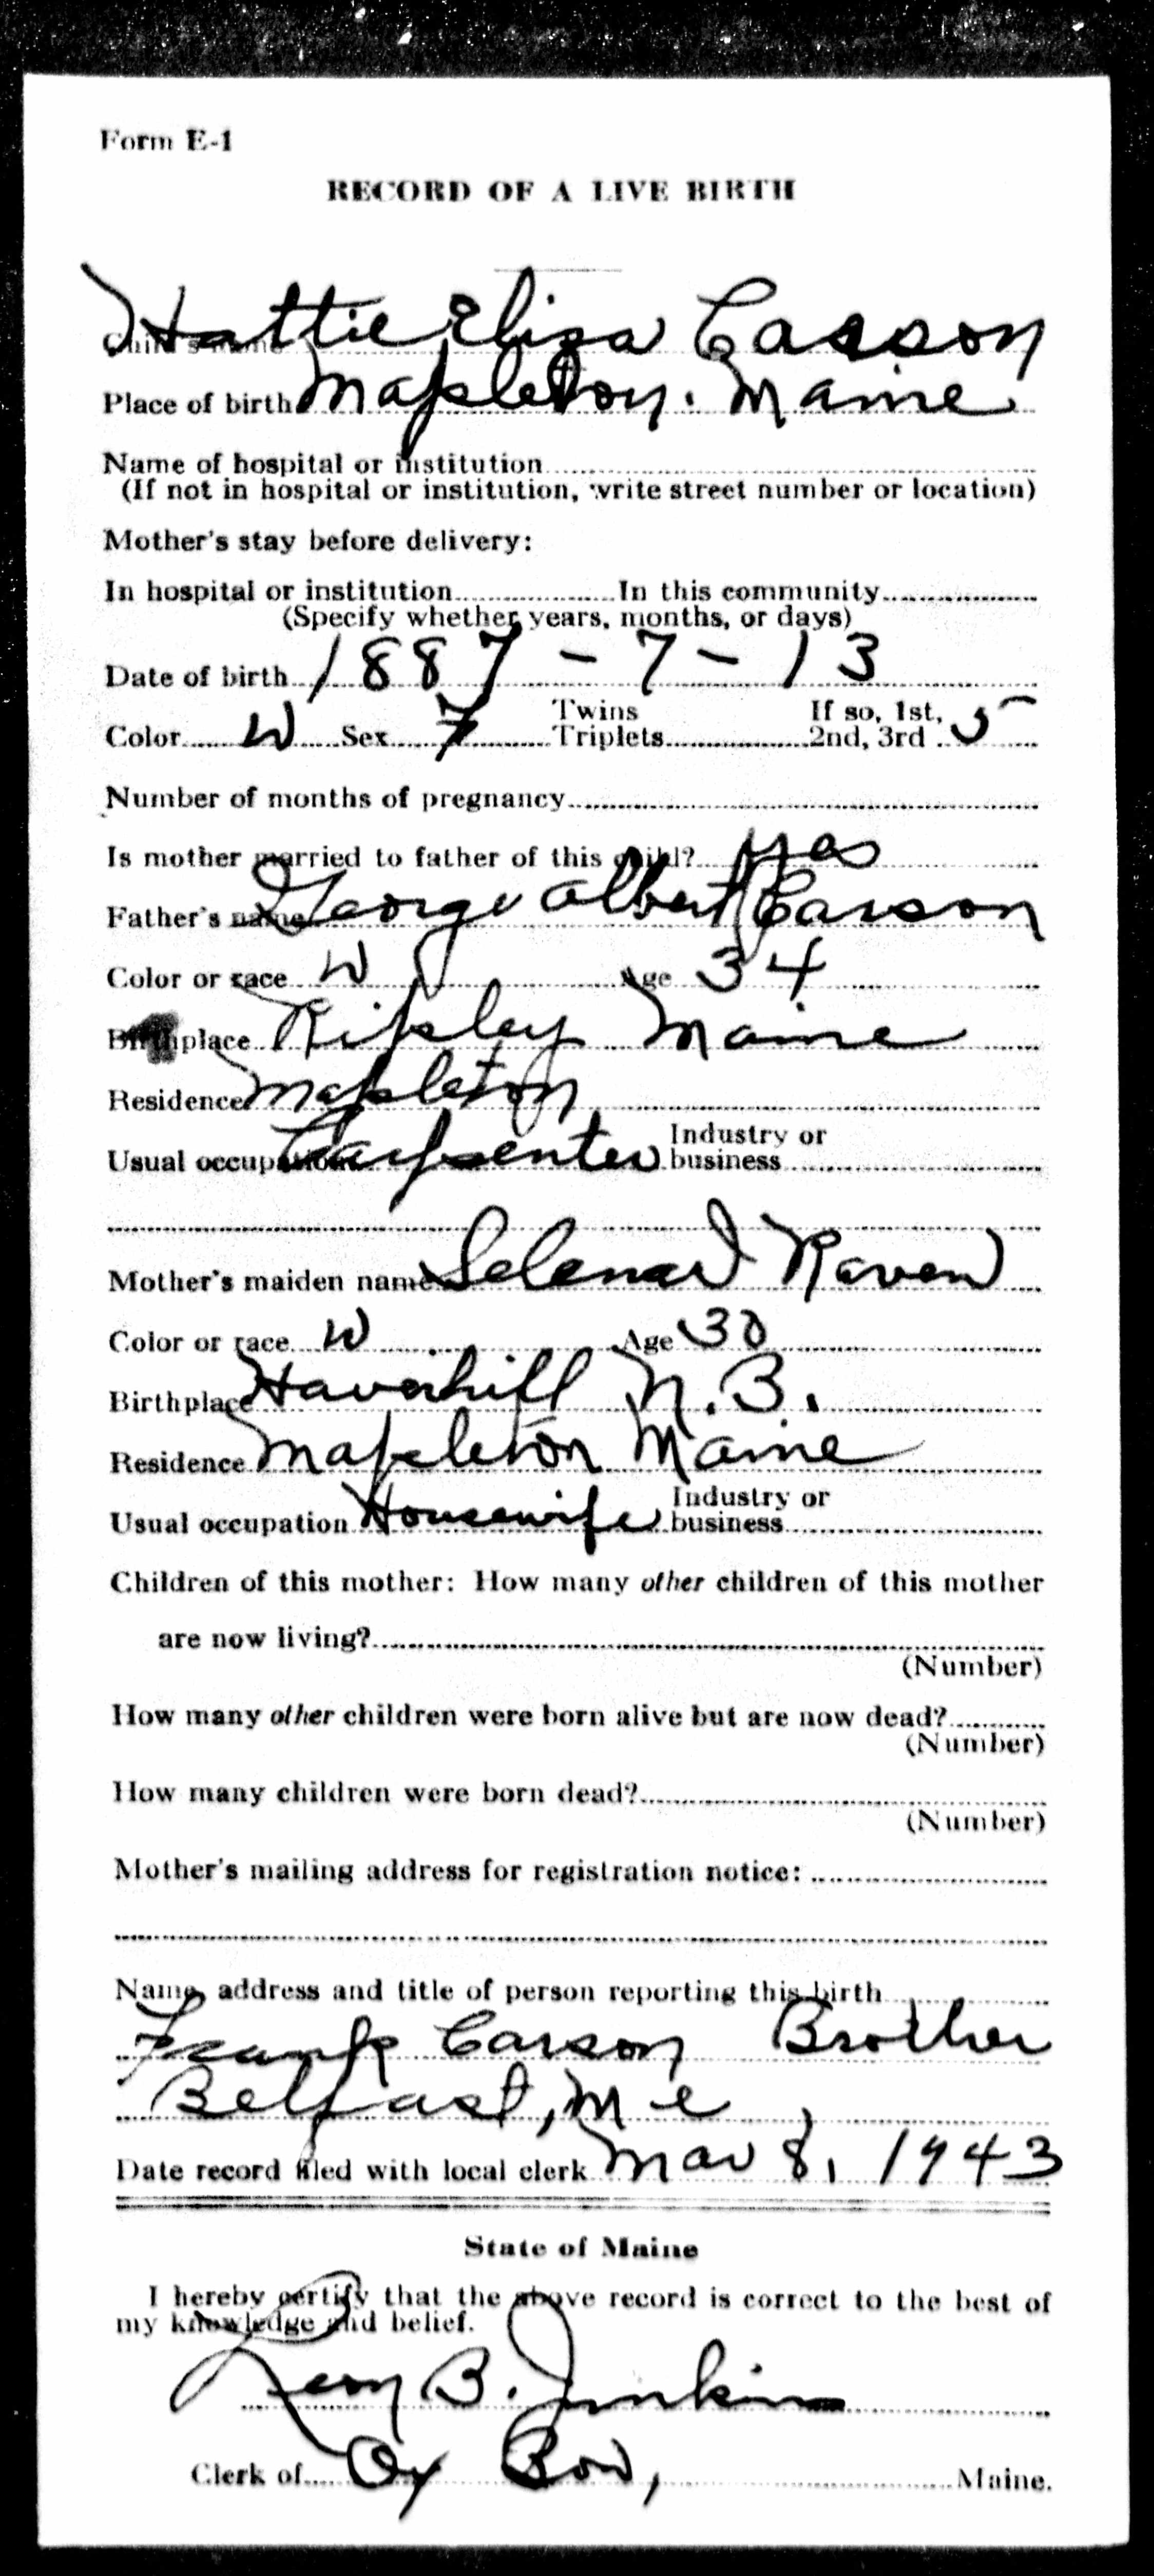 Form E-1
RECORD OF A LIVE BIRTH
Child's name Hattie Eliza Casson
Place of birth Mapleton. Maine
Name of hospital or institution
(If not in hospital or institution, write street number or location)
Mother's stay before delivery:
In hospital or institution In this community
(Specify whether years, months, or days)
Date of birth 1887-7-13
Color W Sex F Twins Triplets If so, 1st, 2nd, 3rd 5
Number of months of pregnancy
Is mother married to father of this child? Yes
Father's name George Albert Carson
Color or race W Age 34
Birthplace Ripley Maine
Residence Mapleton
Usual occupation Carpenter Industry or business
Mother's maiden name Selena Raven
Color or race W Age 30
Birthplace Haverhill N.B.
Residence Mapleton Maine
Usual occupation Housewife Industry or business
Children of this mother: How many other children of this mother
are now living?
(Number)
How many other children were born alive but are now dead?
(Number)
How many children were born dead?
(Number)
Mother's mailing address for registration notice:
Name, address and title of person reporting this birth
Frank Carson Brother
Belfast, Me
Date record filed with local clerk Mar 8, 1943
State of Maine
I hereby certify that the above record is correct to the best of
my knowledge and belief.
Leon B. Junkins
Clerk of Ox Bow, Maine.